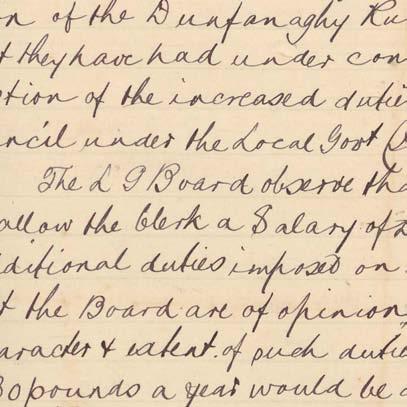 on of the Dunfanaghy Ru
t they have had under con
tion of the increased dutie
ncil under the Local Govt (
The L G Board observe tha
allow the Clerk a Salary of
ditional duties imposed on
t the Board are of opinion
aracter & extent of such dutie
30 pounds a year would be a